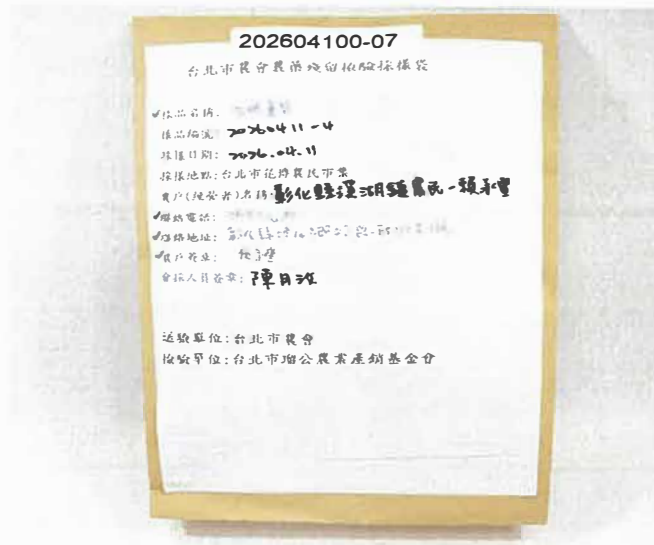 202604100-07
台北市農會農藥殘留檢驗採樣袋
✓樣品名稱:
樣品編號: 20260411-4
採樣日期: 2026.04.11
採樣地點:台北市花博農民市集
農戶(經營者)名稱:彰化縣溪湖鎮農民-賴永豐
✓聯絡電話:
✓連絡地址: 彰化縣
✓農戶簽章:
會採人員簽章: 陳月
送驗單位:台北市農會
檢驗單位:台北市瑠公農業產銷基金會